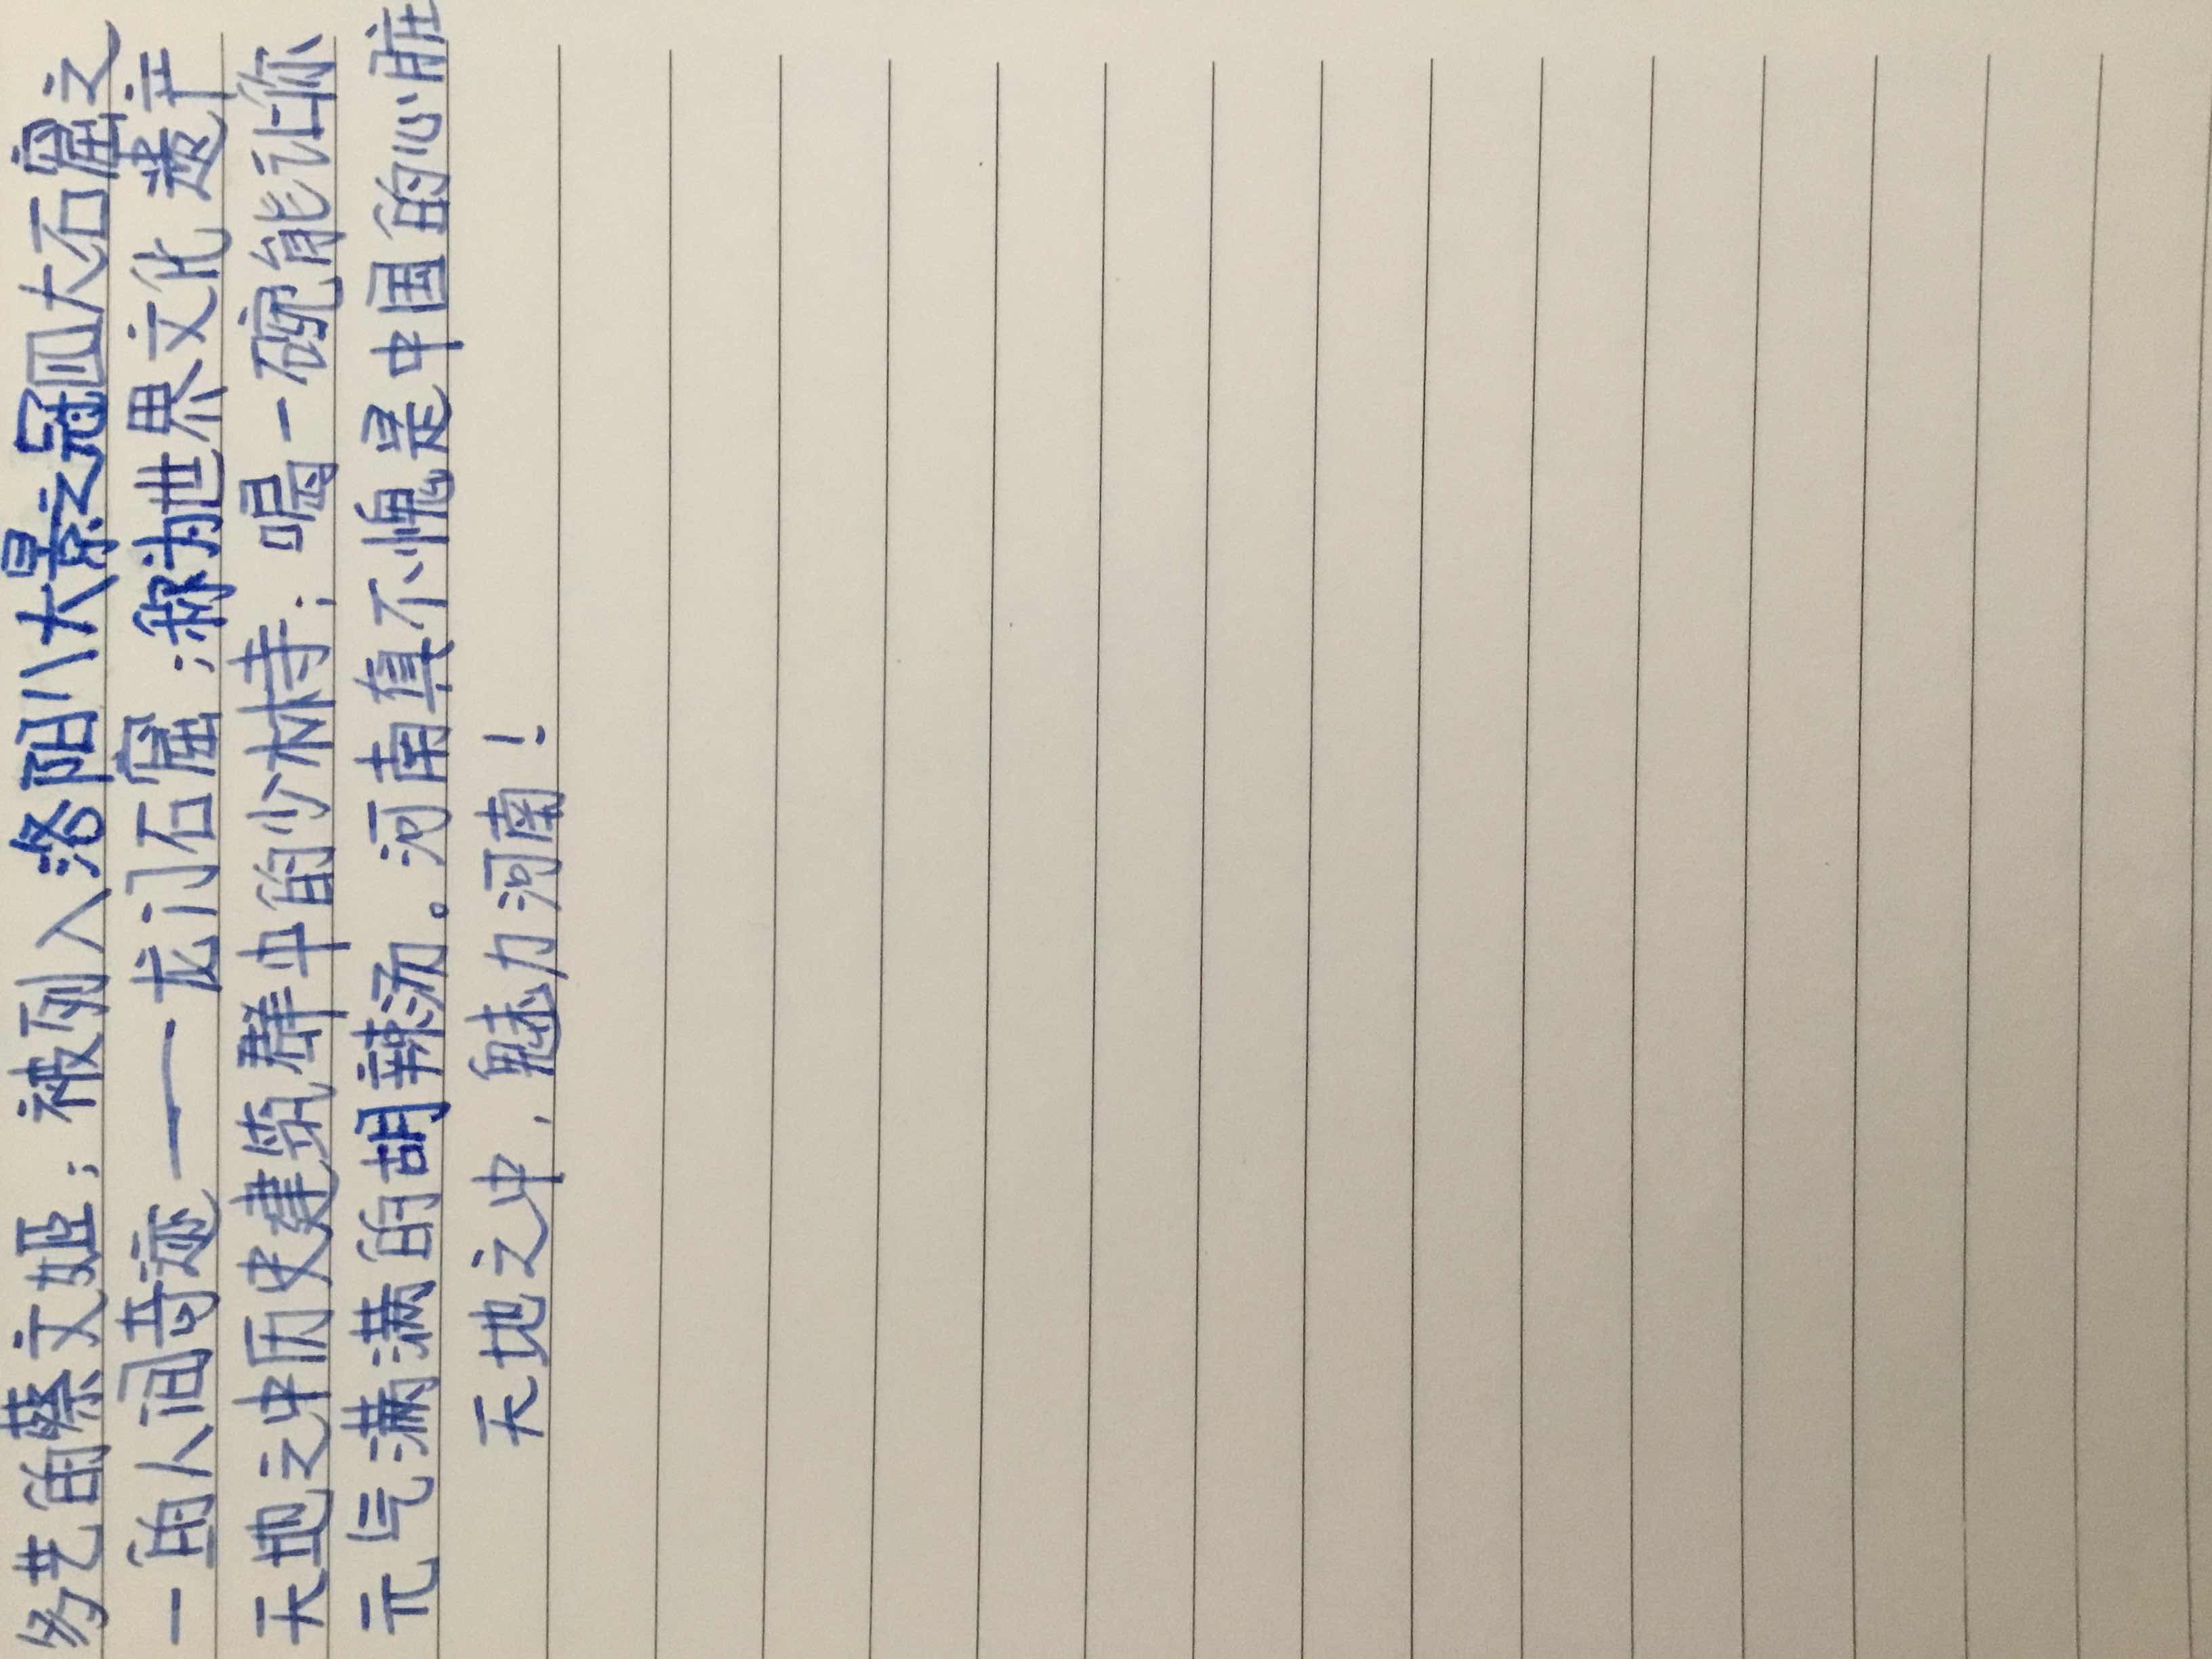 多艺的蔡文姬；被列入洛阳八大景之冠四大石窟之
一的人间奇迹——龙门石窟；称为世界文化遗产
天地之中历史建筑群中的少林寺；喝一碗能让你
元气满满的胡辣汤。河南真不愧是中国的心脏
天地之中，魅力河南！